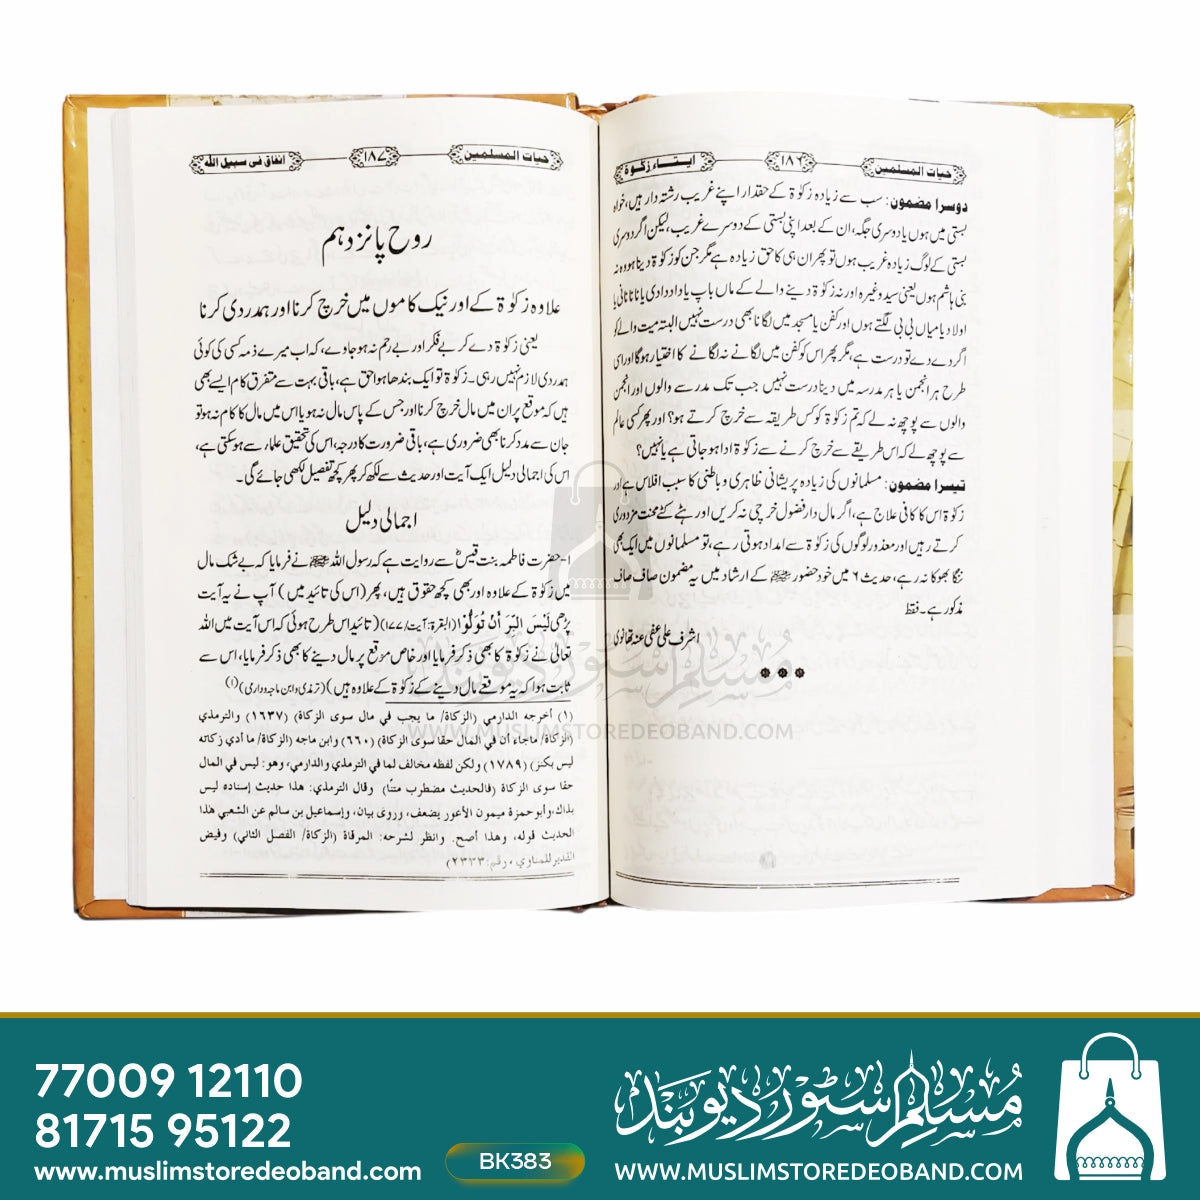 حیات المسلمین
۱۸۶
ایتاء زکوٰة
دوسرا مضمون: سب سے زیادہ زکوٰة کے حقدار اپنے غریب رشتہ دار ہیں، خواہ
بستی میں ہوں یا دوسری جگہ، ان کے بعد اپنی بستی کے دوسرے غریب، لیکن اگر دوسری
بستی کے لوگ زیادہ غریب ہوں تو پھر ان ہی کا حق زیادہ ہے مگر جن کو زکوٰة دینا ہو وہ نہ
بنی ہاشم ہوں یعنی سید وغیرہ اور نہ زکوٰة دینے والے کے ماں باپ یا دادا دادی یا نانا نانی یا
اولاد یا میاں بی بی لگتے ہوں اور کفن یا مسجد میں لگانا بھی درست نہیں البتہ میت والے کو
اگر دے دے تو درست ہے، مگر پھر اس کو کفن میں لگانے نہ لگانے کا اختیار ہوگا اور اسی
طرح ہر انجمن یا ہر مدرسہ میں دینا درست نہیں جب تک مدرسے والوں اور انجمن
والوں سے پوچھ نہ لے کہ تم زکوٰة کو کس طریقہ سے خرچ کرتے ہو؟ اور پھر کسی عالم
سے پوچھ لے کہ اس طریقے سے خرچ کرنے سے زکوٰة ادا ہو جاتی ہے یا نہیں؟
تیسرا مضمون: مسلمانوں کی زیادہ پریشانی ظاہری و باطنی کا سبب افلاس ہے اور
زکوٰة اس کا کافی علاج ہے، اگر مال دار فضول خرچی نہ کریں اور ہٹے کٹے محنت مزدوری
کرتے رہیں اور معذور لوگوں کی زکوٰة سے امداد ہوتی رہے، تو مسلمانوں میں ایک بھی
ننگا بھوکا نہ رہے، حدیث ۶ میں خود حضور ﷺ کے ارشاد میں یہ مضمون صاف صاف
مذکور ہے۔ فقط
اشرف علی عفی عنہ تھانوی
حیات المسلمین
۱۸۷
انفاق فی سبیل اللہ
روح پانزدہم
علاوہ زکوٰة کے اور نیک کاموں میں خرچ کرنا اور ہمدردی کرنا
یعنی زکوٰة دے کر بے فکر اور بے رحم نہ ہو جاوے، کہ اب میرے ذمہ کسی کی کوئی
ہمدردی لازم نہیں رہی۔ زکوٰة تو ایک بندھا ہوا حق ہے، باقی بہت سے متفرق کام ایسے بھی
ہیں کہ موقع پر ان میں مال خرچ کرنا اور جس کے پاس مال نہ ہو یا اس میں مال کا کام نہ ہو تو
جان سے مدد کرنا بھی ضروری ہے، باقی ضرورت کا درجہ، اس کی تحقیق علماء سے ہو سکتی ہے،
اس کی اجمالی دلیل ایک آیت اور حدیث سے لکھ کر پھر کچھ تفصیل لکھی جائے گی۔
اجمالی دلیل
۱- حضرت فاطمہ بنت قیسؓ سے روایت ہے کہ رسول اللہ ﷺ نے فرمایا کہ بے شک مال
میں زکوٰة کے علاوہ اور بھی کچھ حقوق ہیں، پھر (اس کی تائید میں) آپ نے یہ آیت
پڑھی لَيْسَ الْبِرَّ أَنْ تُوَلُّوْا (البقرة: آیت/۱۷۷) (تائید اس طرح ہوئی کہ اس آیت میں اللہ
تعالیٰ نے زکوٰة کا بھی ذکر فرمایا اور خاص موقع پر مال دینے کا بھی ذکر فرمایا، اس سے
ثابت ہوا کہ یہ موقعے مال دینے کے زکوٰة کے علاوہ ہیں) (ترمذی وابن ماجہ ودارمی) (۱)
(۱) أخرجه الدارمي (الزكاة/ ما يجب في مال سوى الزكاة) (۱٦۳۷) والترمذي
(الزكاة/ ماجاء أن في المال حقا سوى الزكاة) (٦٦۰) وابن ماجه (الزكاة/ ما أدي زكاته
ليس بكنز) (۱۷۸۹) ولكن لفظه مخالف لما في الترمذي والدارمي، وهو: ليس في المال
حقا سوى الزكاة (فالحديث مضطرب متنا) وقال الترمذي: هذا حديث إسناده ليس
بذاك، وأبو حمزة ميمون الأعور يضعف، وروى بيان، وإسماعيل بن سالم عن الشعبي هذا
الحديث قوله، وهذا أصح. وانظر لشرحه: المرقاة (الزكاة/ الفصل الثاني) وفيض
القدير للمناوي، رقم: ۲۳۳۳)
مسلم سٹور دیوبند
WWW.MUSLIMSTOREDEOBAND.COM
77009 12110
81715 95122
www.muslimstoredeoband.com
BK383
مسلم سٹور دیوبند
WWW.MUSLIMSTOREDEOBAND.COM